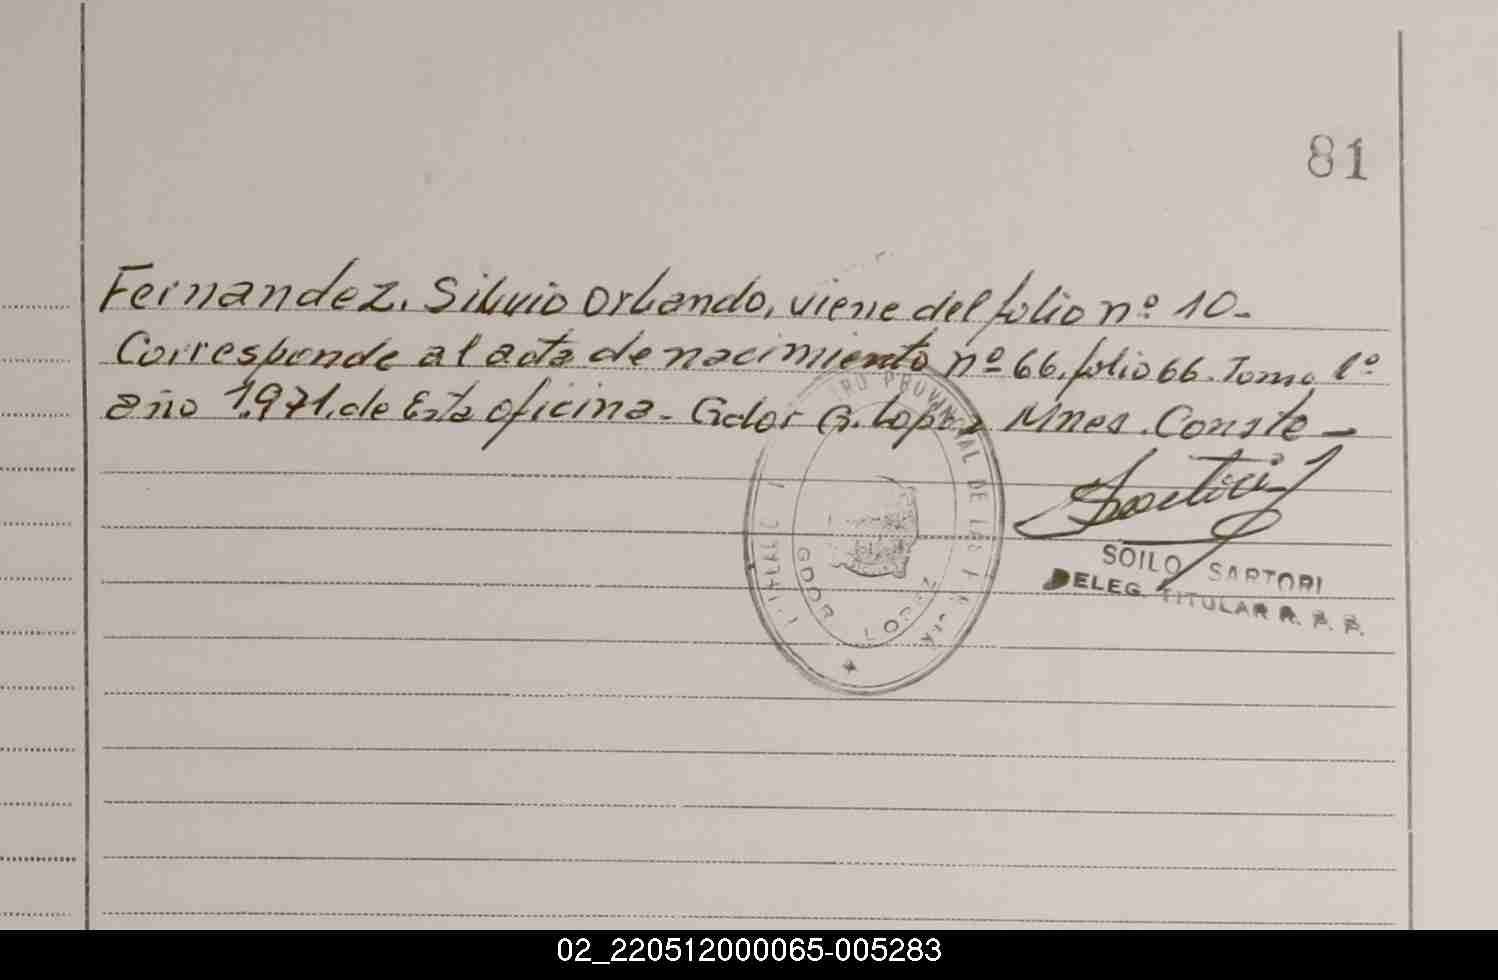 81
Fernandez. Silvio Orlando, viene del folio nº 10-
Corresponde al acta de nacimiento nº 66. folio 66. Tomo 1º
año 1.971. de Esta oficina - Gdor G. Lopez Mnes. Conste -
Sartori
SOILO SARTORI
DELEG. TITULAR R. P. P.
PROVINCIAL DE LAS
GDOR LOPEZ
02_220512000065-005283